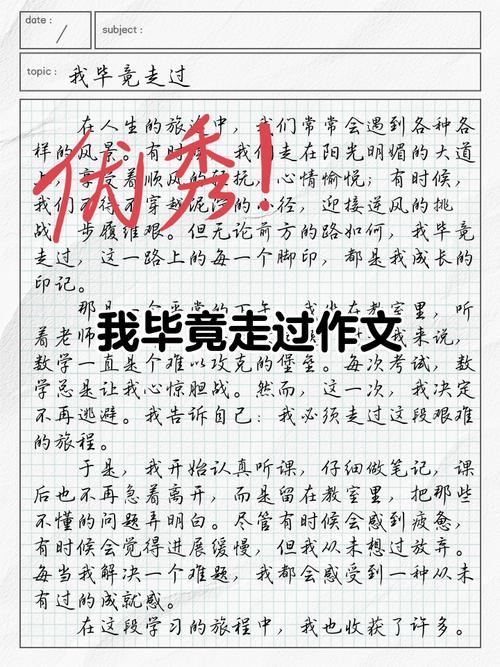 date :
subject :
topic : 我毕竟走过
在人生的旅途中，我们常常会遇到各种各
样的风景。有时候，我们走在阳光明媚的大道
上，享受着顺风的轻抚，心情愉悦；有时候，
我们不得不穿越泥泞的小径，迎接逆风的挑
战，步履维艰。但无论前方的路如何，我毕竟
走过，这一路上的每一个脚印，都是我成长的
印记。
优秀！
那是一个平常的下午，我坐在教室里，听
着老师 我来说，
我毕竟走过作文
数学一直是个难以攻克的堡垒。每次考试，数
学总是让我心惊胆战。然而，这一次，我决定
不再逃避。我告诉自己：我必须走过这段艰难
的旅程。
于是，我开始认真听课，仔细做笔记，课
后也不再急着离开，而是留在教室里，把那些
不懂的问题弄明白。尽管有时候会感到疲惫，
有时候会觉得进展缓慢，但我从未想过放弃。
每当我解决一个难题，我都会感受到一种从未
有过的成就感。
在这段学习的旅程中，我也收获了许多。